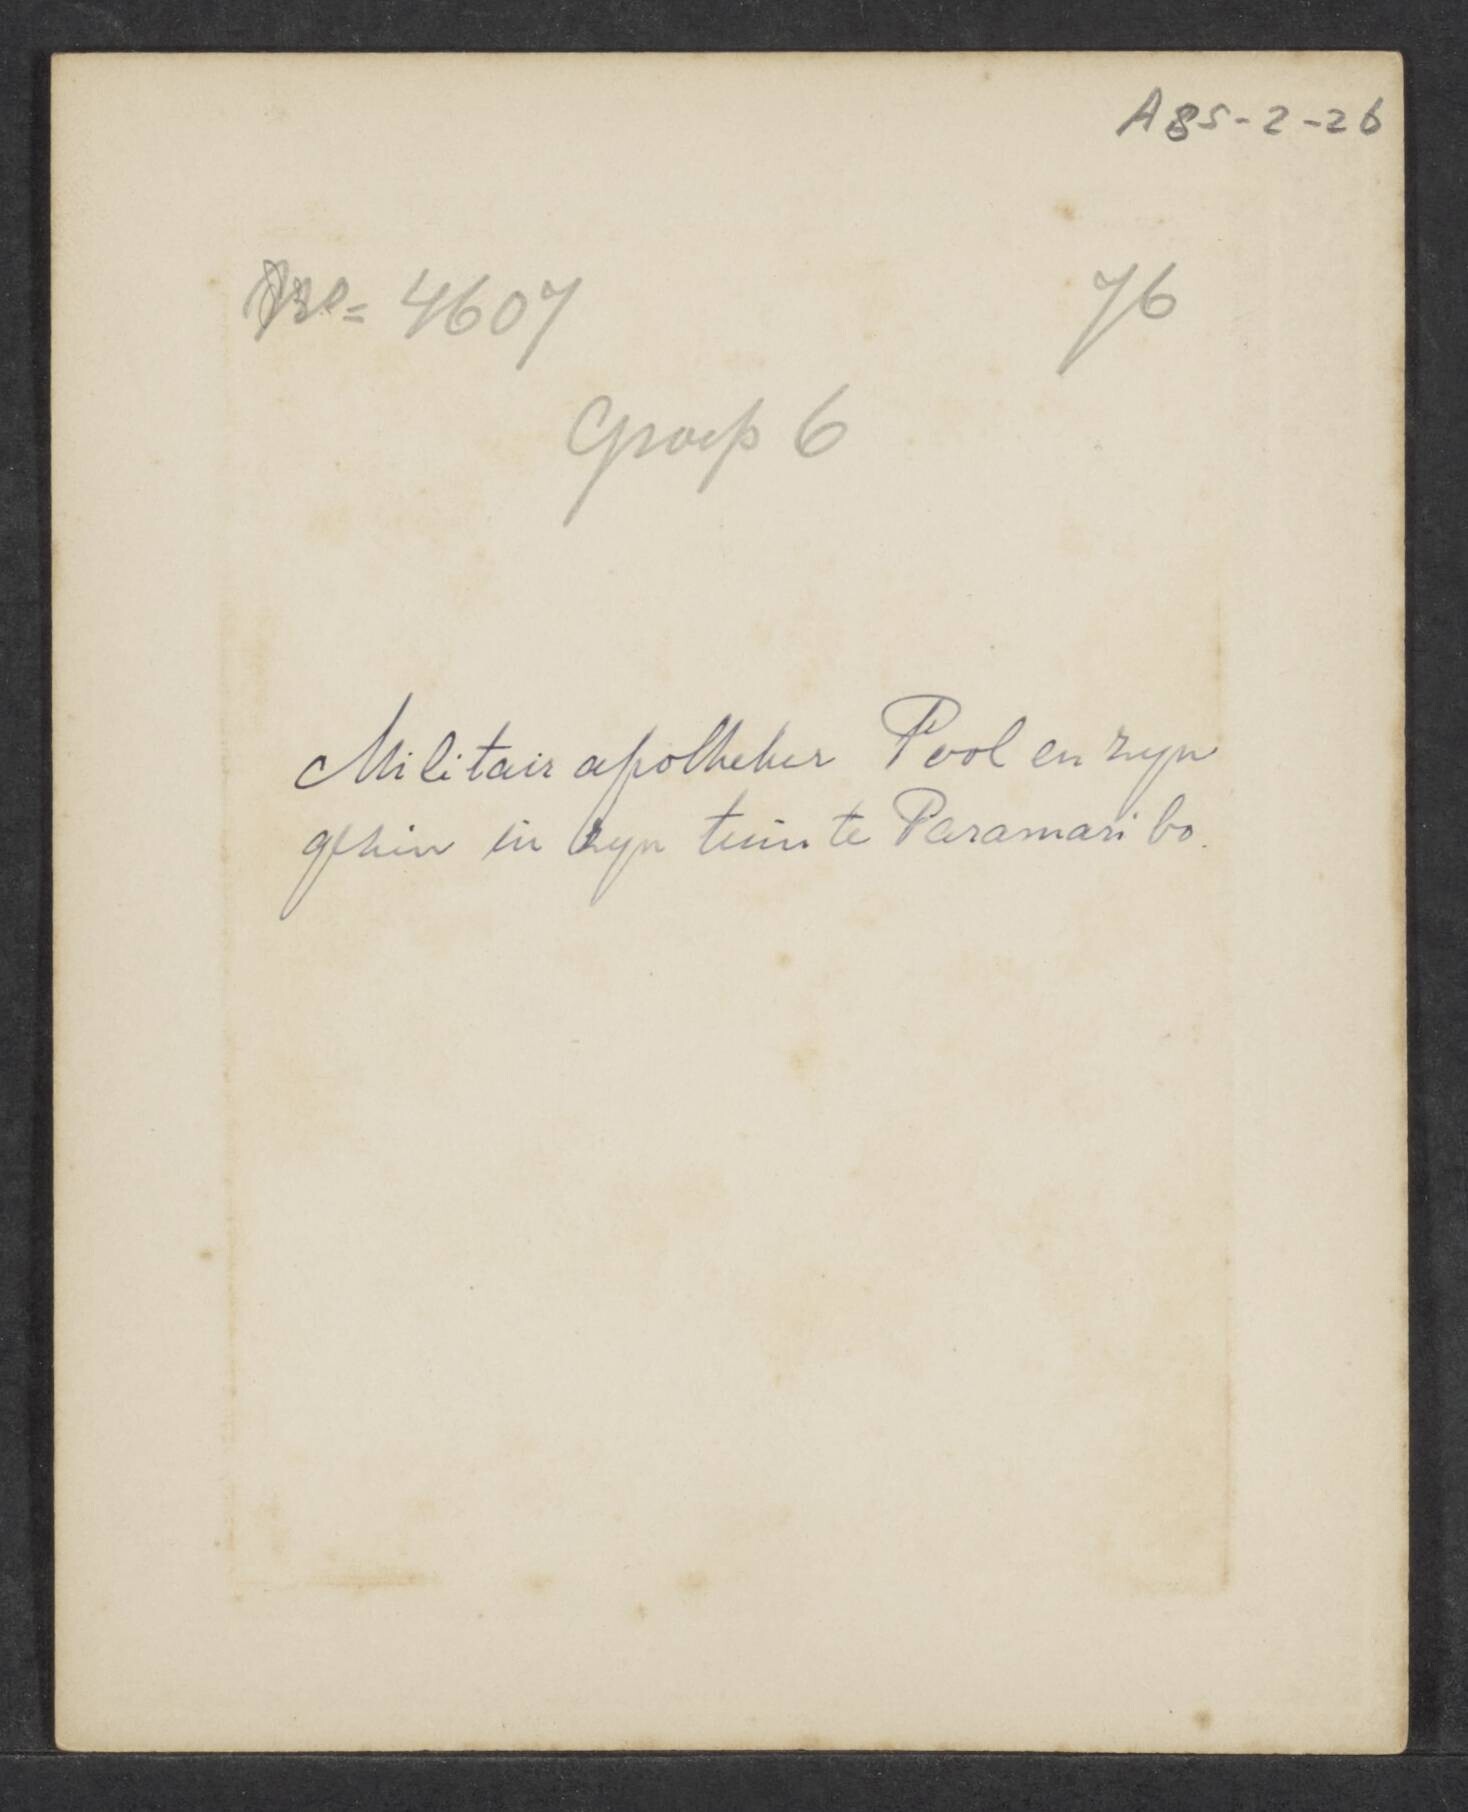 A 85-2-26
4607 76
Groep 6
Militair apotheker Pool en zyn
gezin in zyn tuin te Paramaribo.